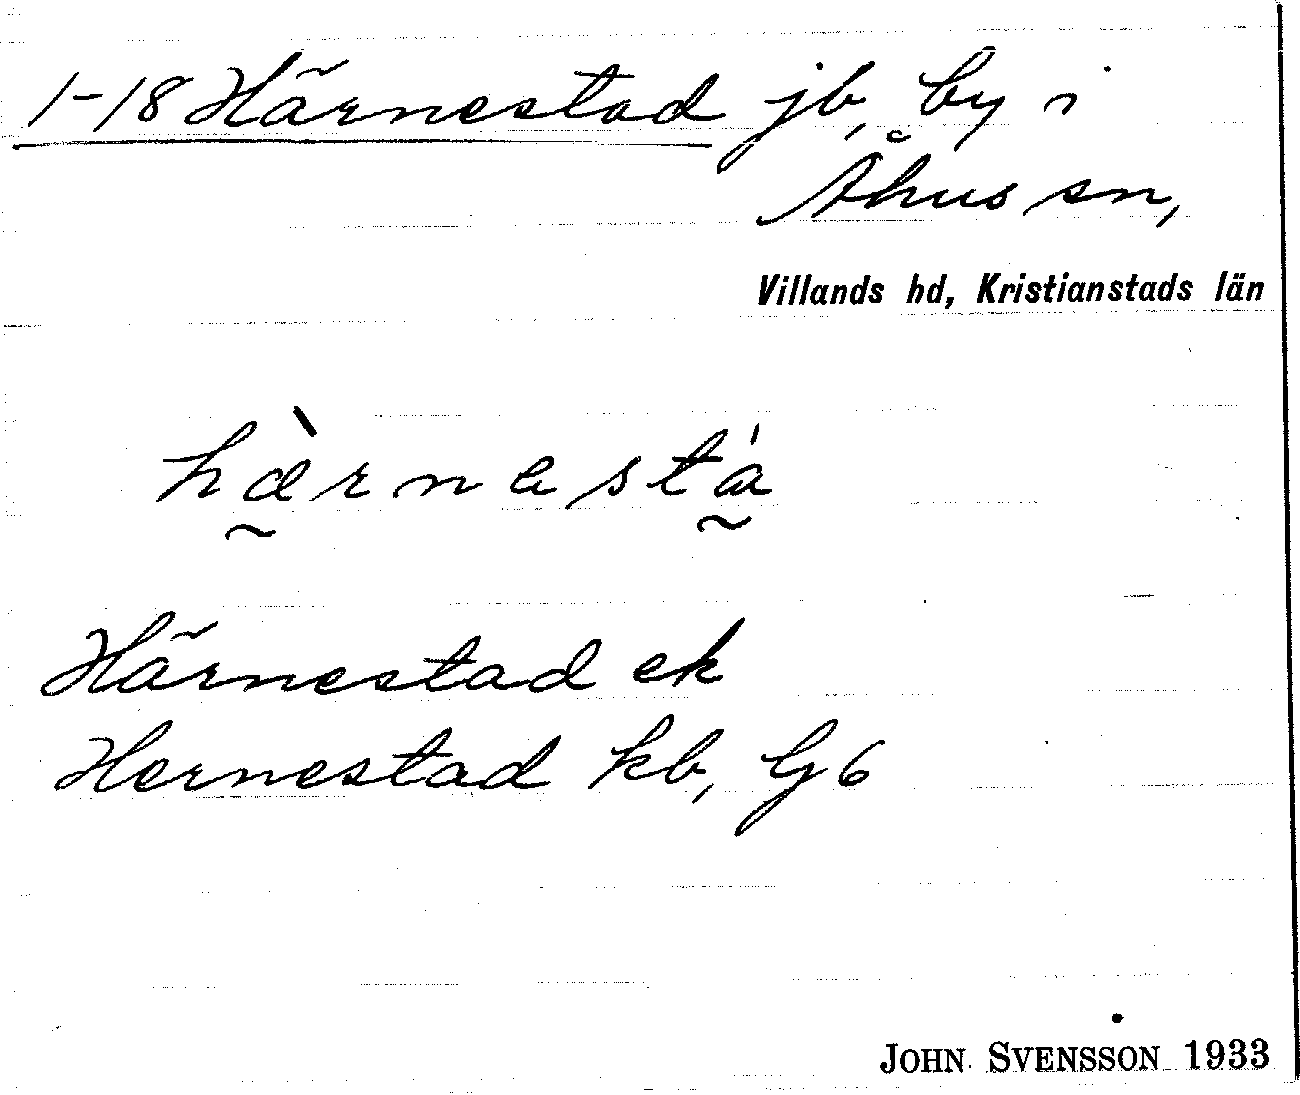 1-18 Härnestad jb, by i
Åhus sn,
Villands hd, Kristianstads län
hæ̀rnestá
Härnestad ek
Hernestad kb, G6
JOHN SVENSSON 1933